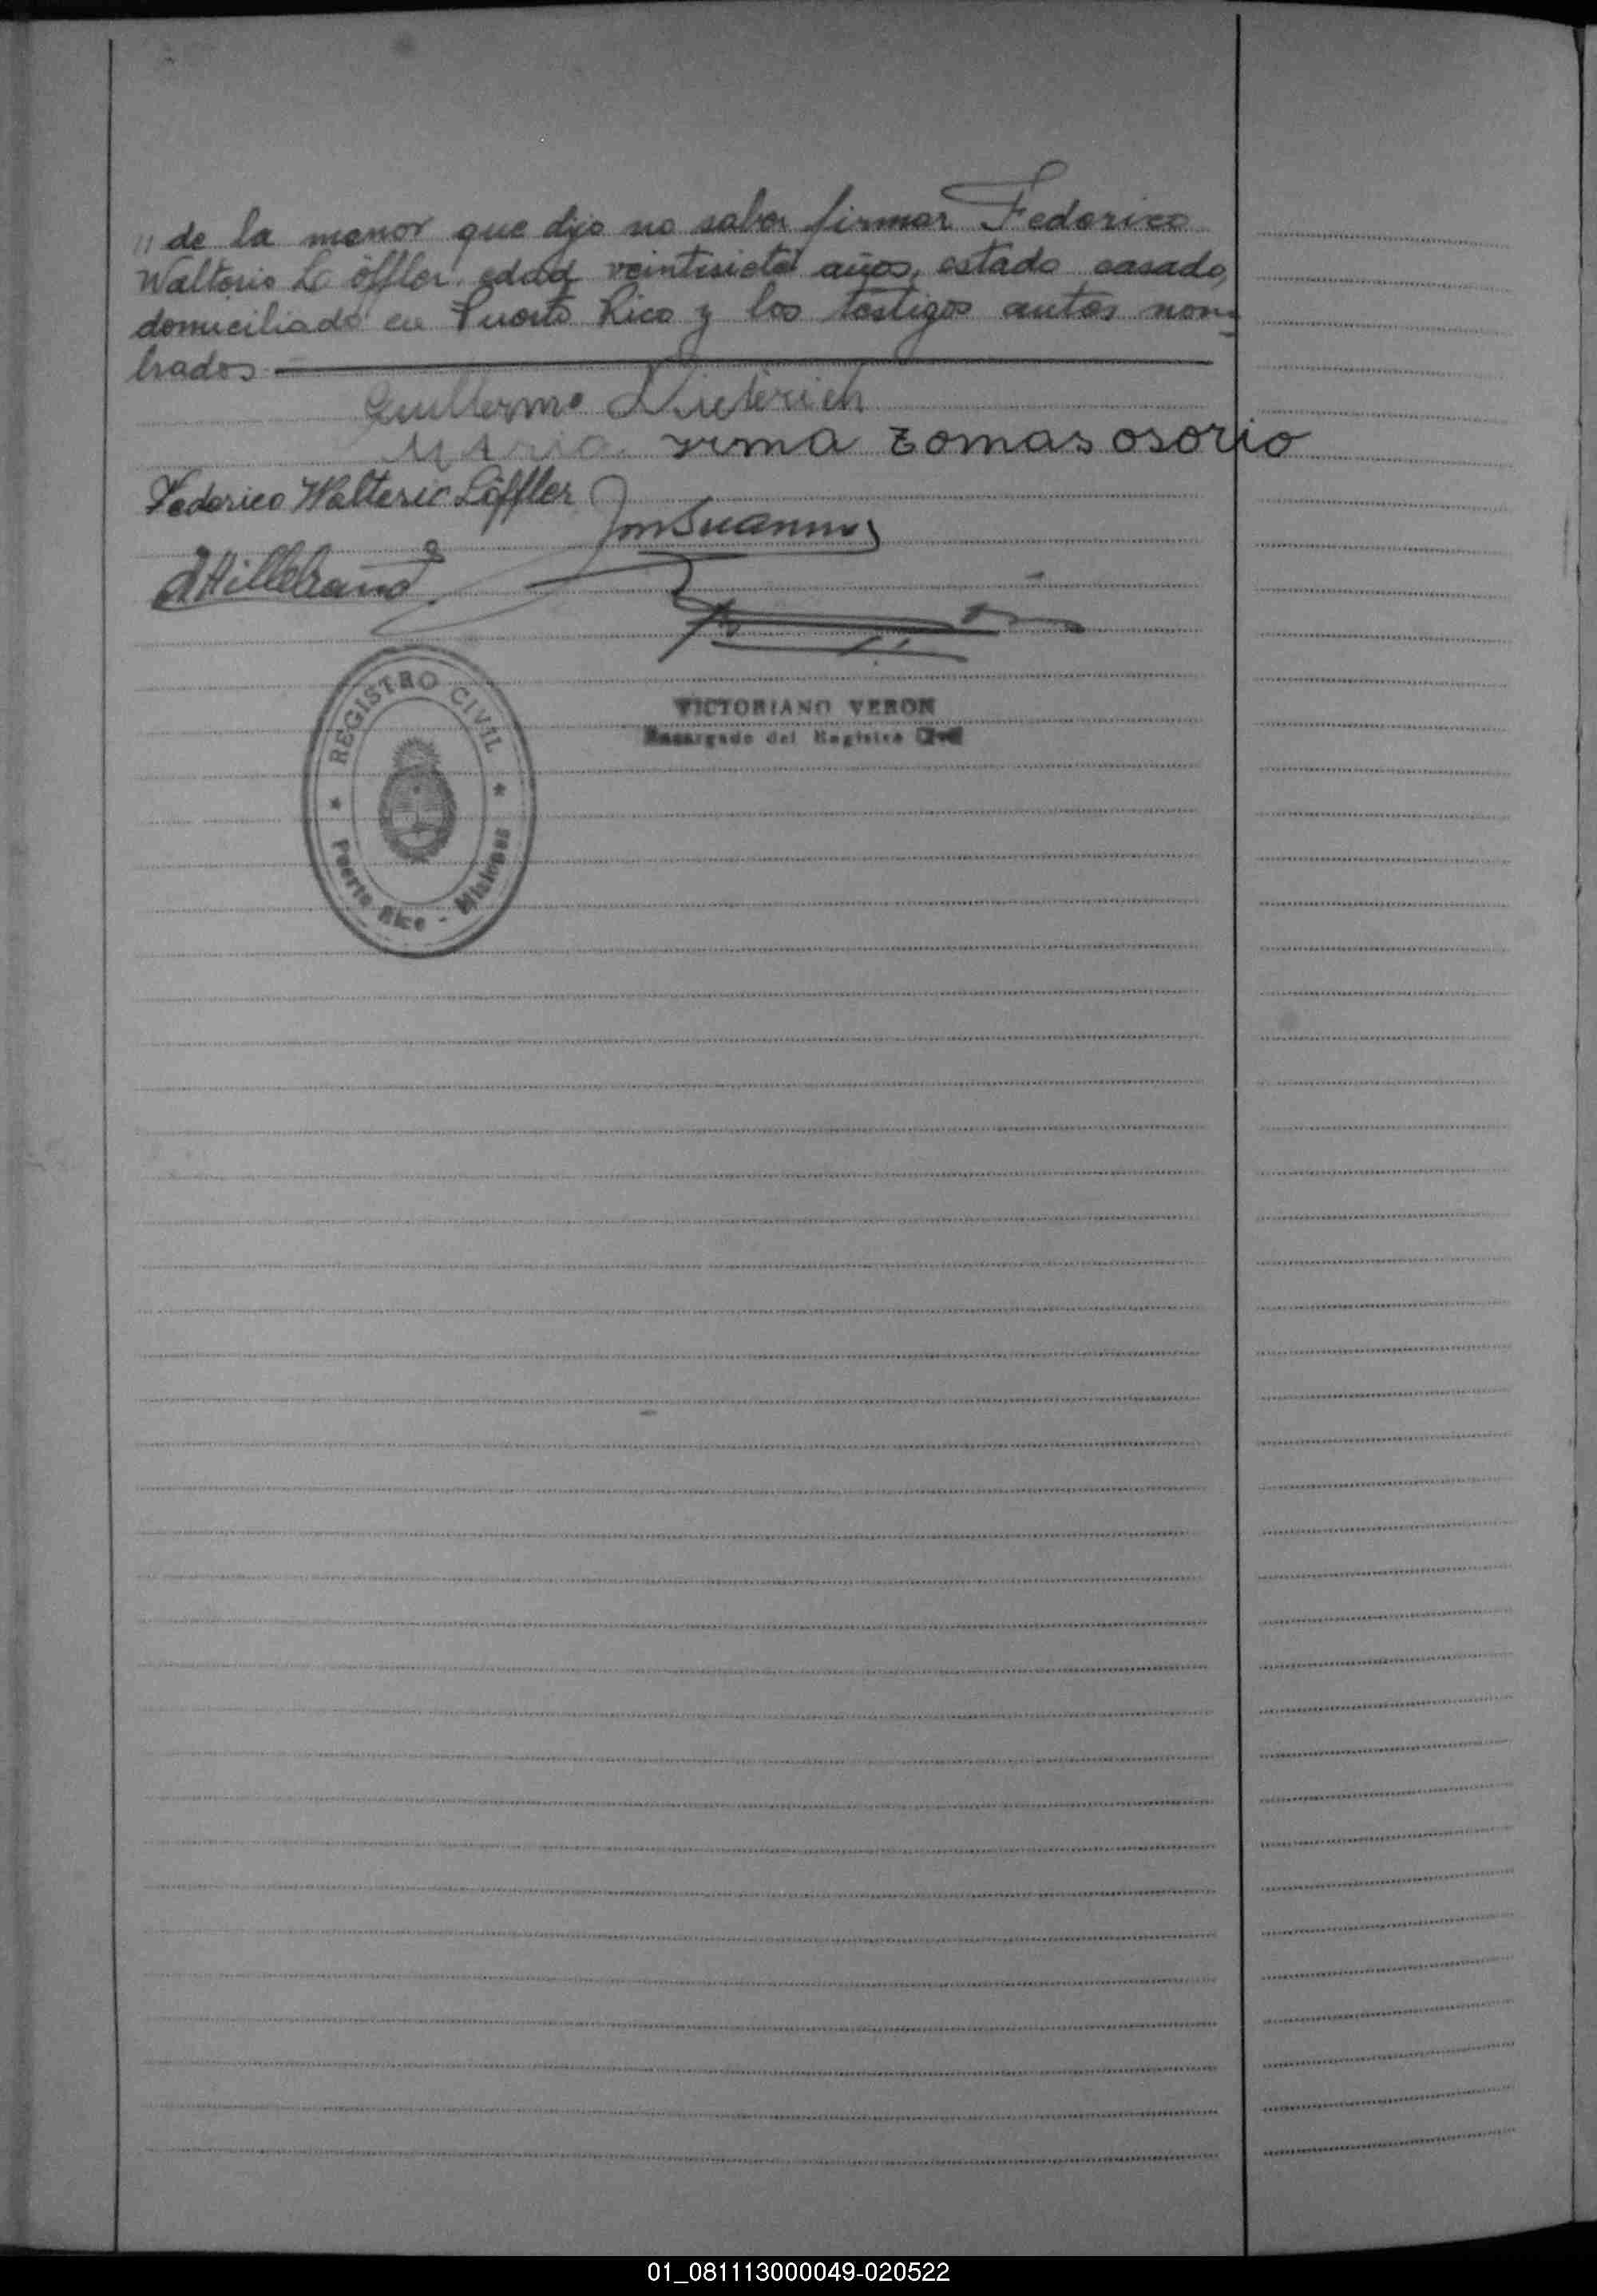 " de la menor que dijo no saber firmar Federico
Walterio Löffler edad veintisiete años, estado casado,
domiciliado en Puerto Rico y los testigos antes nom-
brados
Guillermo Dieterich
Maria irma tomas osorio
Federico Walterio Löffler
Hillebrand
REGISTRO CIVIL
Puerto Rico - Misiones
VICTORIANO VERON
Encargado del Registro Civil
01_081113000049-020522